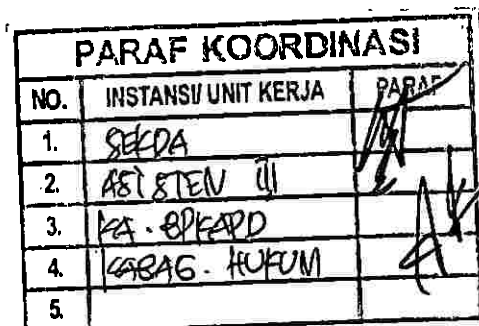 PARAF KOORDINASI
NO. INSTANSI/ UNIT KERJA PARAF
1. SEKDA
2. ASISTEN III
3. KA. BPKAPD
4. KABAG. HUKUM
5.